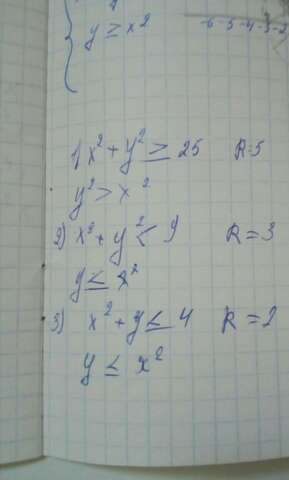 y ≥ x²
-6 -5 -4 -3 -2
1) x² + y² ≥ 25 R=5
y² > x²
2) x² + y² < 9 R = 3
y ≤ x²
3) x² + y ≤ 4 R = 2
y ≤ x²